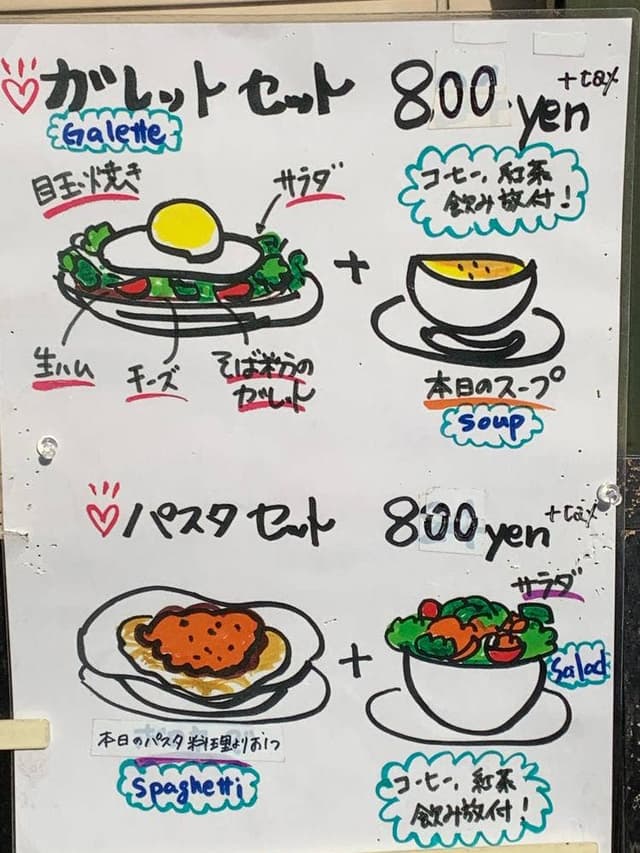 ガレットセット 800 yen +tax
Galette
コーヒー、紅茶
飲み放付!
目玉焼き
サラダ
+
生ハム
チーズ
そば粉の
ガレット
本日のスープ
soup
パスタセット 800 yen +tax
サラダ
+
Salad
本日のパスタ料理より1つ
Spaghetti
コーヒー、紅茶
飲み放付!